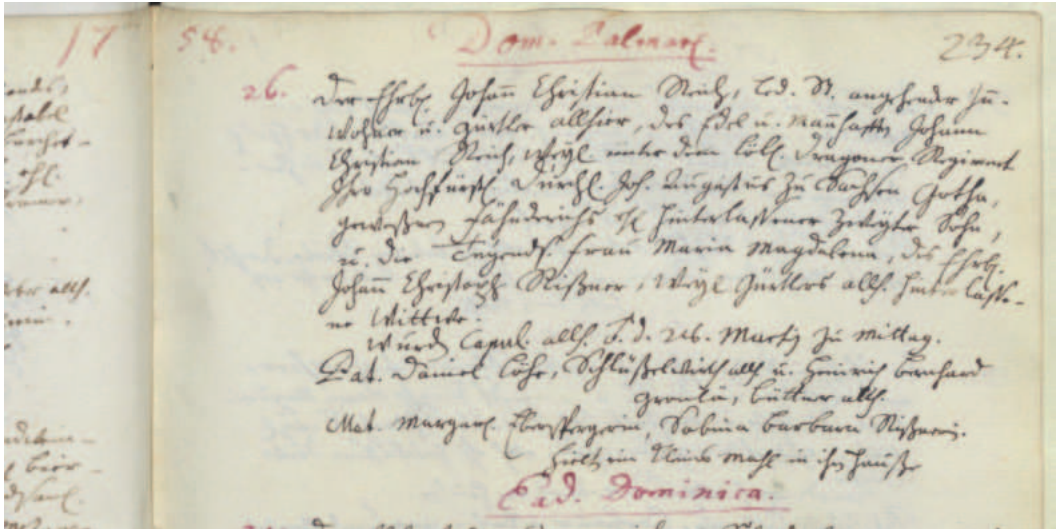 17
58.
Dom. Palmar.
234.
26. Der Ehrb. Johann Christian Reich, led. St. angehender In-
wohner u. Gürtler allhier, des Edel u. Mannhafften Johann
Christian Reich, weyl. unter dem löbl. Dragoner Regiment
Ihro Hochfürstl. Durchl. Joh. Augustus zu Sachsen Gotha,
gewesenen Fähndrichs hinterlassener zweyter Sohn,
u. die Tugends. Frau Maria Magdalena, des Ehrb.
Johann Christoph Rißner, weyl. Gürtlers allh. hinterlaße-
ne Wittwe.
Wurden Copul. allh. d. 26. Martij zu Mittag.
Pat. Daniel Löhr, Schlüßelwirth allh. u. Heinrich Bernhard
Büttner allh.
Mat. Margar. Ebersbergerin, Sabina Barbara Rißnerin.
Hielten ein kleines Mahl in ihrem Hauße
Ead. Dominica.